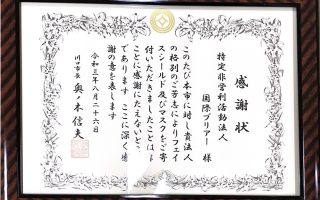 感謝状
特定非営利活動法人
国際ブリアー 様
このたび本市に対し貴法人
の格別のご芳志によりフェイ
スシールド及びマスクをご寄
付いただきましたことはま
ことに感謝にたえないところ
であります ここに深く感
謝の意を表します
令和三年八月二十六日
川口市長 奥ノ木信夫